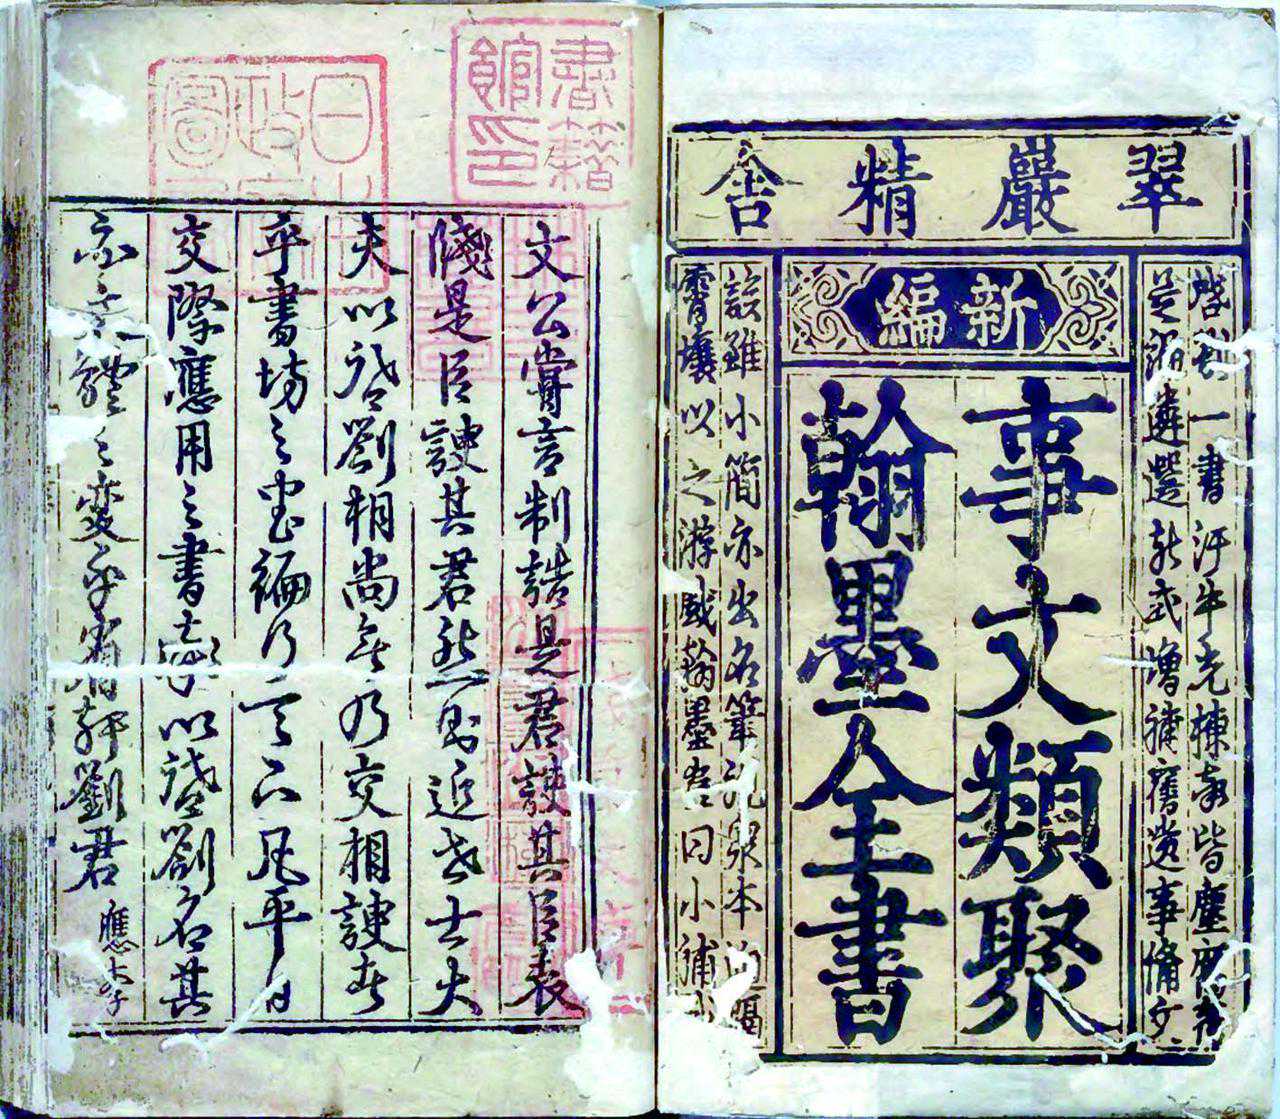 翠巖精舍
啓劄一書汗牛充棟皆塵腐
是編遴選新式增補舊遺事備文
新編
事文類聚
翰墨全書
該雖小簡亦出名筆況眾本
霄壤以之游戲翰墨奚曰小補
書籍館印
文公嘗言制誥是君諛其臣表
牋是臣諛其君然則近世士大
夫以啓劄相尚無乃交相諛者
乎書坊之書徧行天下凡平日
交際應用之書率以啓劄名其
亦文體之變乎省軒劉君應李